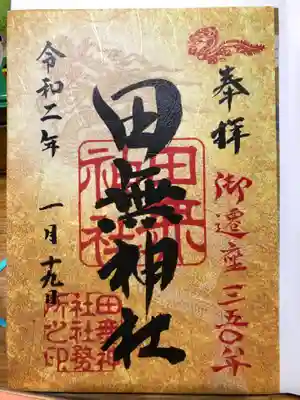 奉拝
御遷座三五〇年
田無神社
田無神社
令和二年 一月 十九日
田無神
社社務
所之印